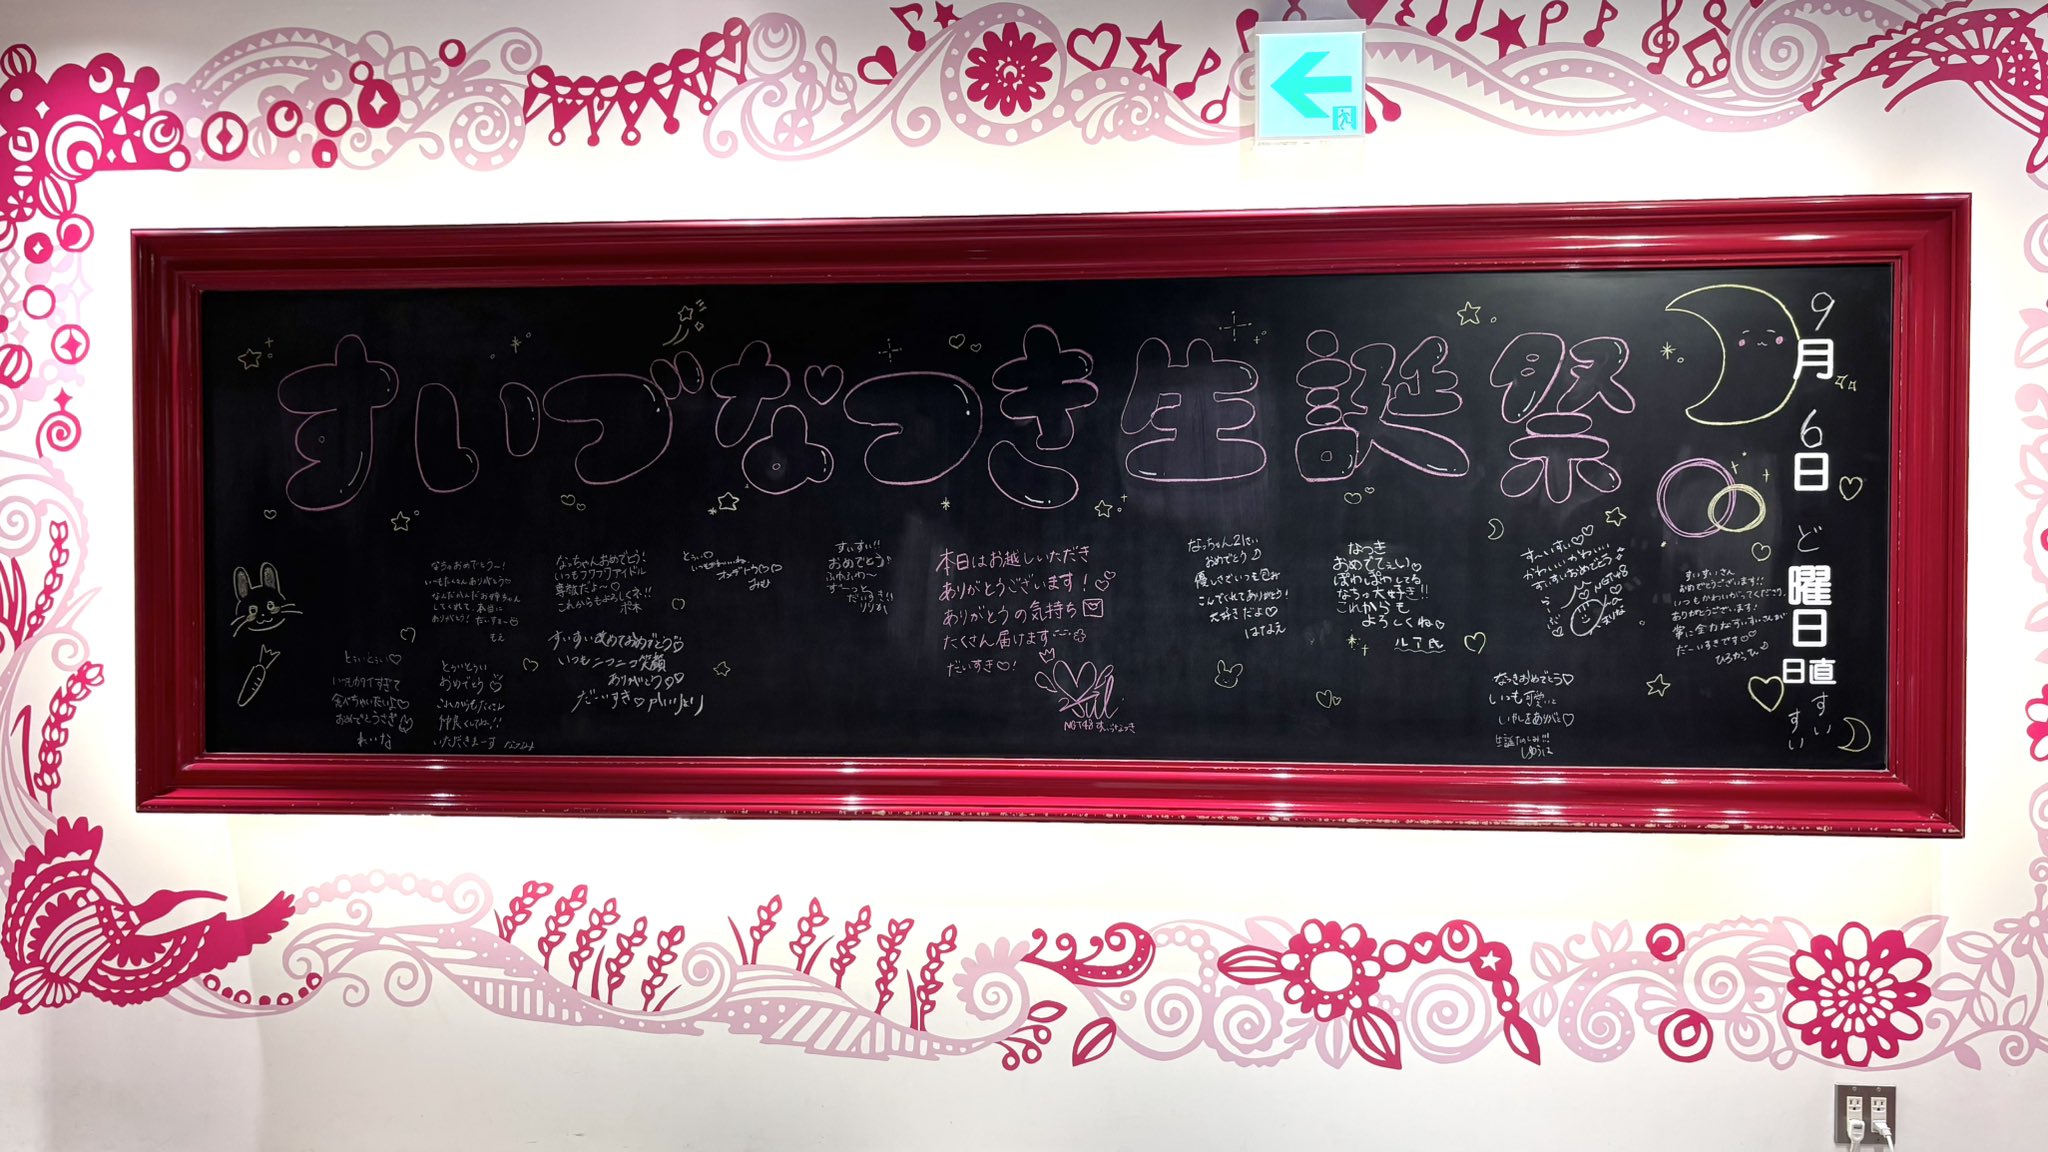 すいづなつき生誕祭
9月6日ど曜日
日直
すいすい
なっちゃんおめでとう!
いつもフワフワアイドル
尊敬だよ〜♡
これからもよろしくネ!!
すいすい改めておめでとう♡
いつもニコニコ笑顔
ありがとう♡
だーいすき♡
すいすい!!
おめでとう
ふわふわ〜
ずーっと
だいすき!!
りりか
本日はお越しいただき
ありがとうございます!♡
ありがとうの気持ち
たくさん届けます
だいすき♡!
NGT48 すいづなつき
なっちゃん21さい
おめでとう♪
優しさでいつも包み
こんでくれてありがとう!
大好きだよ♡
はなえ
なつき
おめでてぇい♡
ぽわしぽわしてる
なちっ大好き!!
これからも
よろしくね♡
す〜いすい♡♡
かわいいかわいい
すいすいおめでとう
NGT48
なつきおめでとう♡
いつも可愛いと
いやしをありがと♡
生誕たのしみ!!!
しゅうは
すいすいさん
おめでとうございます!!
いつもかわいがってくださり、
ありがとうございます!
常に全力なすいすいさんが
だーいすきです♡♡
ひろかっひ
いつもたくさんありがとう♡
してくれて、本当に
ありがとう! だいすきー
もえ
おめでとう♡
これからもたくさん
仲良くしてね!!
いつもカワイすぎて
食べちゃいたいよ♡
おめでとうさぎ
れいな